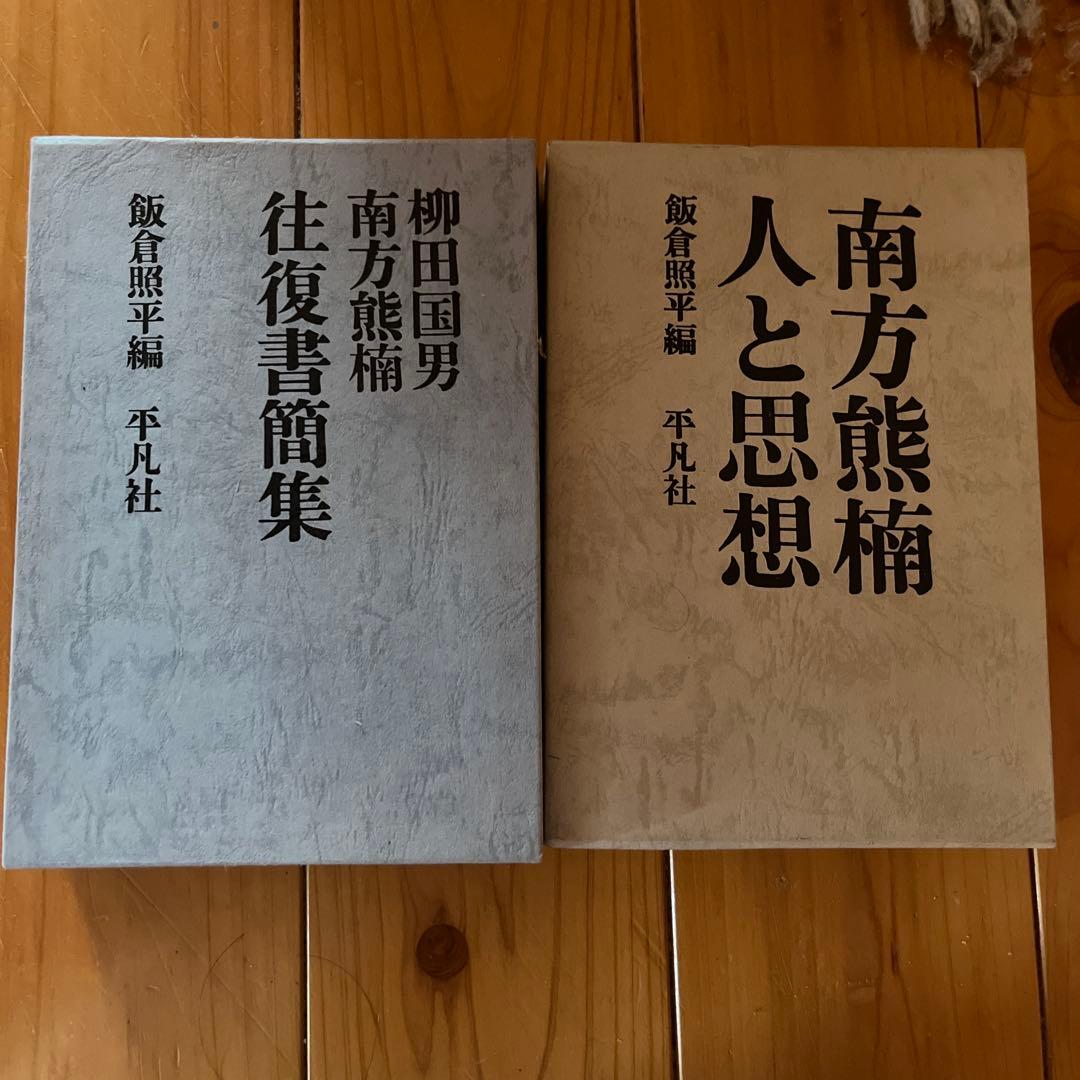 柳田国男
南方熊楠
往復書簡集
飯倉照平編 平凡社
南方熊楠
人と思想
飯倉照平編 平凡社